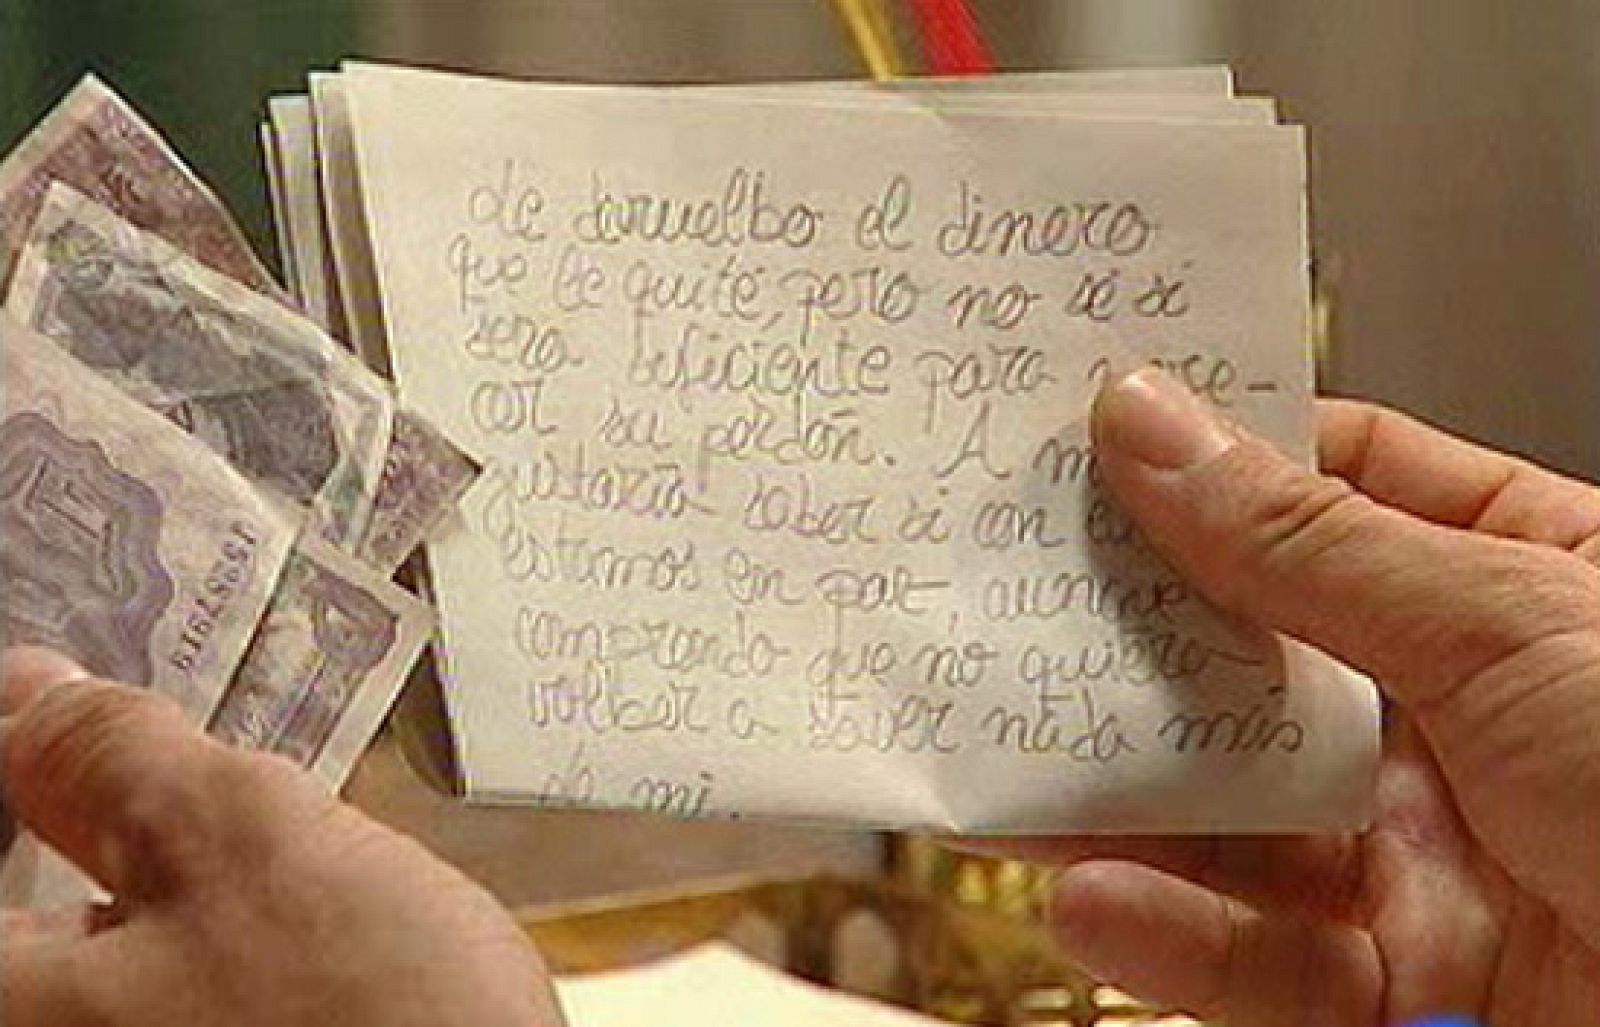 Le devuelbo el dinero
que le quité, pero no sé si
sera suficiente para
cer su perdón. A
gustaria saber si con
estamos en paz, aunque
comprendo que no quiera
volber a saver nada más
de mi.
15287919